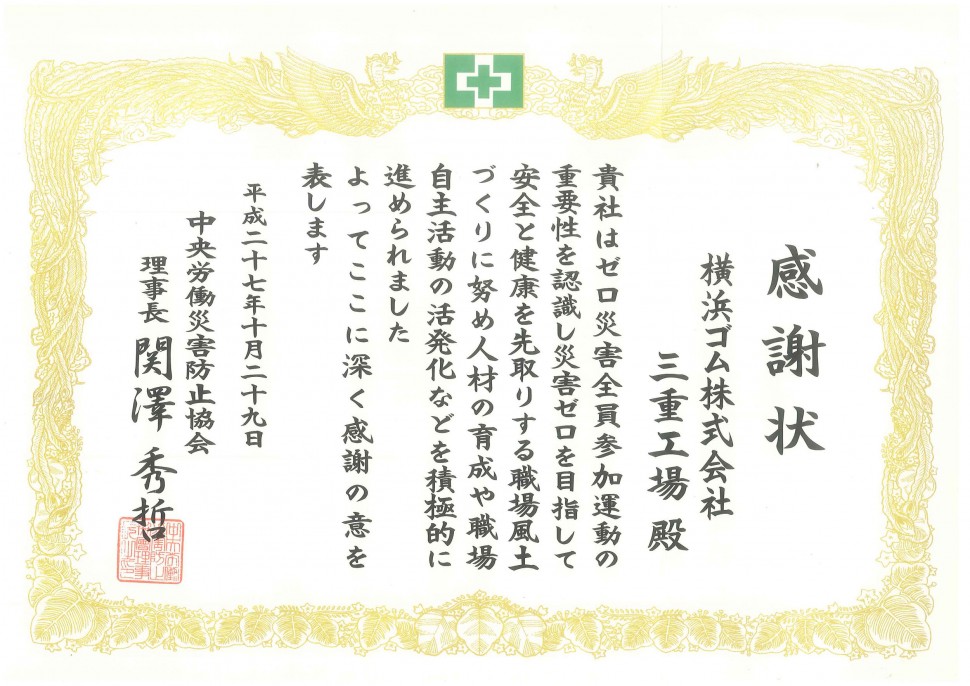 感謝状
横浜ゴム株式会社
三重工場 殿
貴社はゼロ災害全員参加運動の
重要性を認識し災害ゼロを目指して
安全と健康を先取りする職場風土
づくりに努め人材の育成や職場
自主活動の活発化などを積極的に
進められました
よってここに深く感謝の意を
表します
平成二十七年十月二十九日
中央労働災害防止協会
理事長 関澤 秀哲